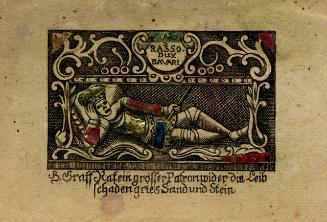 RASSO.
DUX
BAVARI
S. Graff Raß ein grosser Patron wider die Leib
schaden gries Sand und Stein